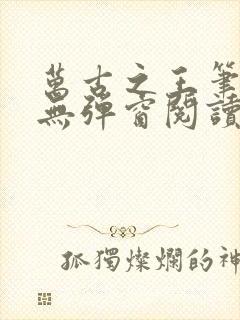 萬古之王筆
無彈窗閱讀
孤獨燦爛的神